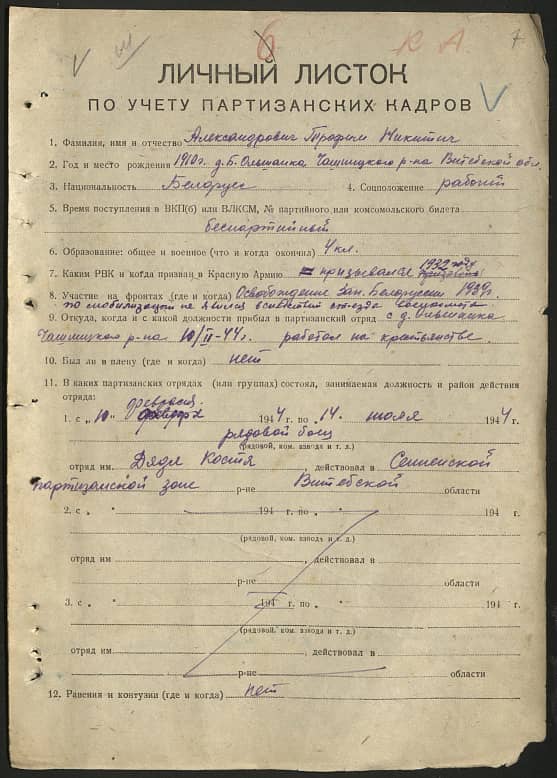 6 К А 7
ЛИЧНЫЙ ЛИСТОК
ПО УЧЕТУ ПАРТИЗАНСКИХ КАДРОВ
1. Фамилия, имя и отчество Александрович Трофим Никитич
2. Год и место рождения 1910 г. д. Б. Ольшанка Чашницкого р-на Витебской обл.
3. Национальность Белорус 4. Соцположение рабочий
5. Время поступления в ВКП(б) или ВЛКСМ, № партийного или комсомольского билета
беспартийный
6. Образование: общее и военное (что и когда окончил) 4 кл.
7. Каким РВК и когда призван в Красную Армию призывался 1932 году
8. Участие на фронтах (где и когда) Освобождение Зап. Белоруссии 1939 г.
по мобилизации не явился
9. Откуда, когда и с какой должности прибыл в партизанский отряд с д. Ольшанка
Чашницкого р-на 10/II-44 г. работал на крестьянстве.
10. Был ли в плену (где и когда) нет
11. В каких партизанских отрядах (или группах) состоял, занимаемая должность и район действия
отряда:
февраля
1. с „10" 1944 г. по „14. июля 1944 г.
рядовой боец
(рядовой, ком. взвода и т. д.)
отряд им. Дядя Костя действовал в Сенненской
партизанской зоне р-не Витебской области
2. с „ " 194 г. по „ 194 г.
(рядовой, ком. взвода и т. д.)
отряд им. , действовал в
р-не области
3. с „ " 194 г. по „ 194 г.
(рядовой, ком. взвода и т. д.)
отряд им. , действовал в
р-не области
12. Ранения и контузии (где и когда) нет